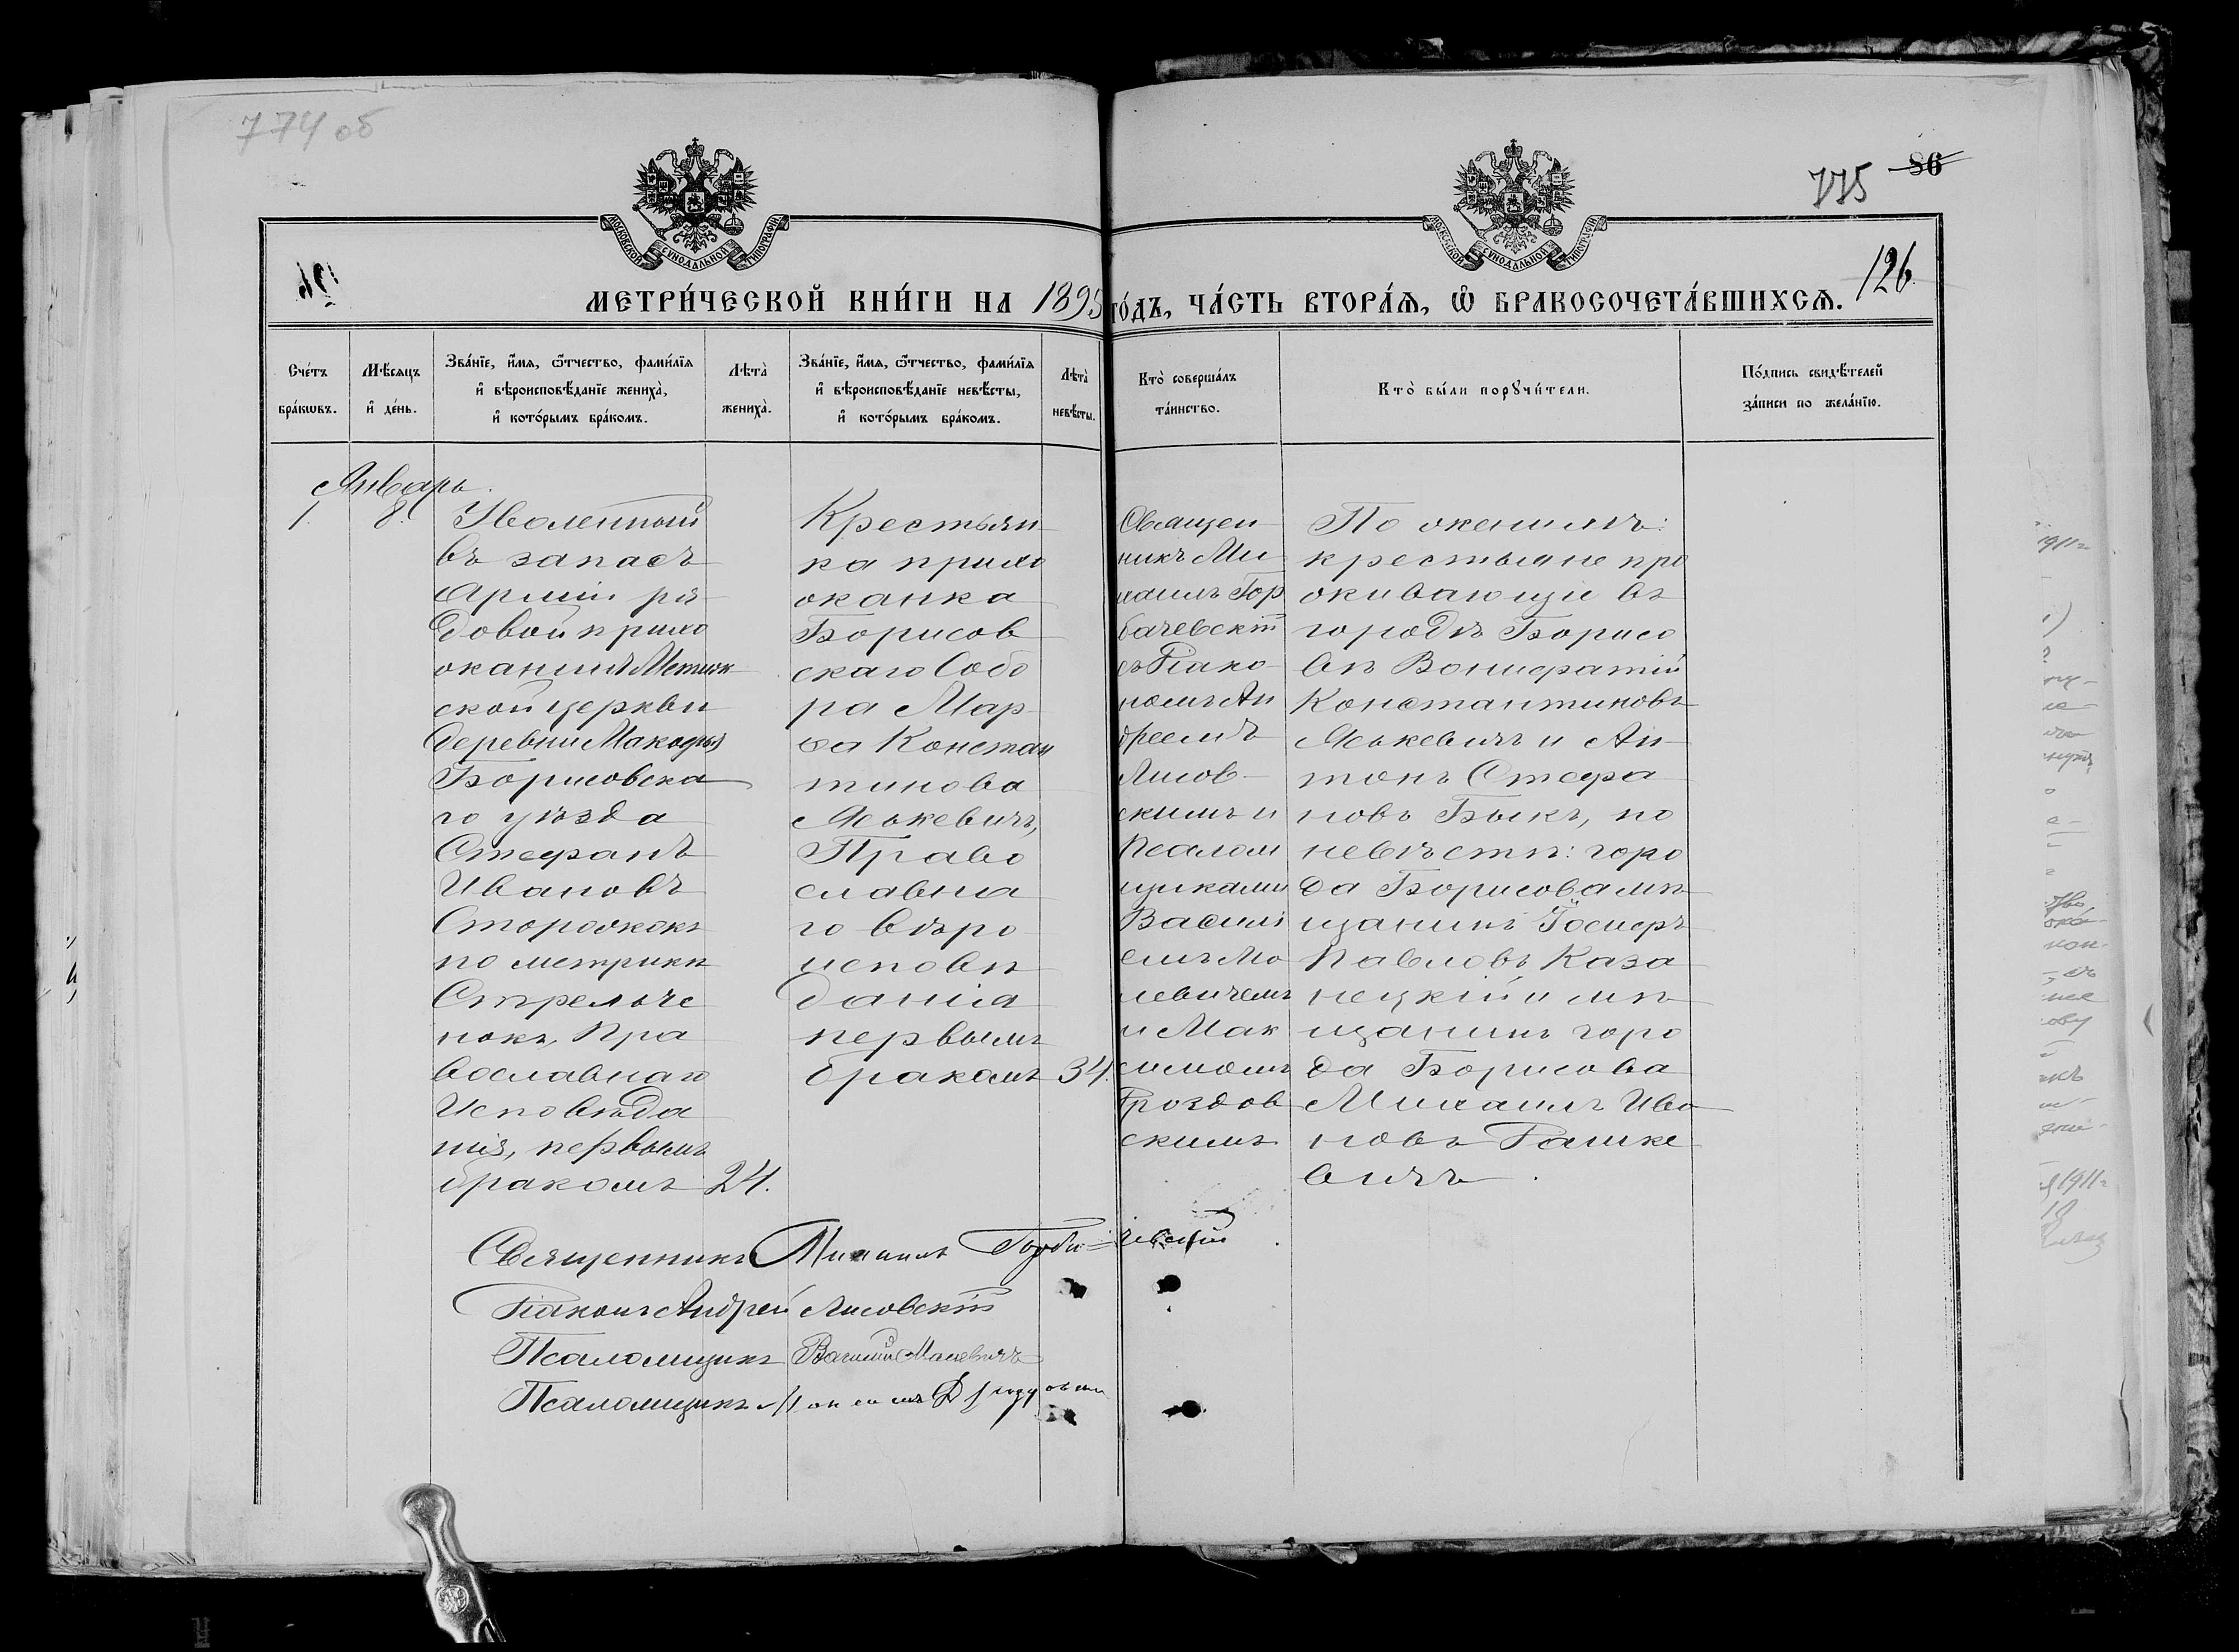 774 об
775 86
126
МОСКОВСКОЙ СУНОДАЛЬНОЙ ТИПОГРАФІИ
МОСКОВСКОЙ СУНОДАЛЬНОЙ ТИПОГРАФІИ
МЕТРИ́ЧЕСКОЙ КНИ́ГИ НА 1895 ГО́ДЪ, ЧА́СТЬ ВТОРА́Я, Ѿ БРАКОСОЧЕТА́ВШИХСЯ.
Сче́тъ
бра́кѡвъ.
Мѣ́сяцъ
и҆ де́нь.
Зва́нїе, и҆́мя, ѻ҆́тчество, фами́лїя
и҆ вѣроисповѣ́данїе жениха̀,
и҆ кото́рымъ бра́комъ.
Лѣта̀
жениха̀.
Зва́нїе, и҆́мя, ѻ҆́тчество, фами́лїя
и҆ вѣроисповѣ́данїе невѣ́сты,
и҆ кото́рымъ бра́комъ.
Лѣта̀
невѣ́сты.
Кто̀ соверша́лъ
та́инство.
Кто̀ бы́ли порꙋчи́тели.
По́дпись свидѣ́телей
за́писи по жела́нїю.
Январь.
1. 8.
Уволенный
въ запасъ
Арміи ря-
довой прихо
жанинъ
ской церкви
деревни
Борисовска
го уѣзда
Стефанъ
Ивановъ
Сторожокъ
по метрикѣ
Стрельче
нокъ, Пра
вославнаго
Исповѣда
нія, первымъ
бракомъ 24.
Крестьян-
ка прихо
жанка
Борисов
скаго Собо
ра Мар-
ѳа Констан
тинова
Мыжевичъ,
Право
славна
го вѣро
исповѣ
данія
первымъ
бракомъ 34.
Священ-
никъ Ми-
хаилъ Гор
бачевскій
съ Діако-
номъ Ан
дреемъ
Лисов-
скимъ и
Псалом
щиками
Васили
емъ Мо
левичемъ
и Мак
симомъ
Дроздов
скимъ
По женихѣ:
крестьяне про
живающіе въ
городѣ Борисо
вѣ Вонифатій
Константиновъ
Мыжевичъ и Ан-
тонъ Стефа
новъ Быкъ, по
невѣстѣ: горо
да Борисова мѣ-
щанинъ Іосифъ
Павловъ Каза
нецкій и мѣ-
щанинъ горо
да Борисова
Михаилъ Ива
новъ Рашке
вичъ.
Священникъ Михаилъ Горбачевскій
Діаконъ Андрей Лисовскій
Псаломщикъ Василій
Псаломщикъ Максимъ
1911 г
1911 г